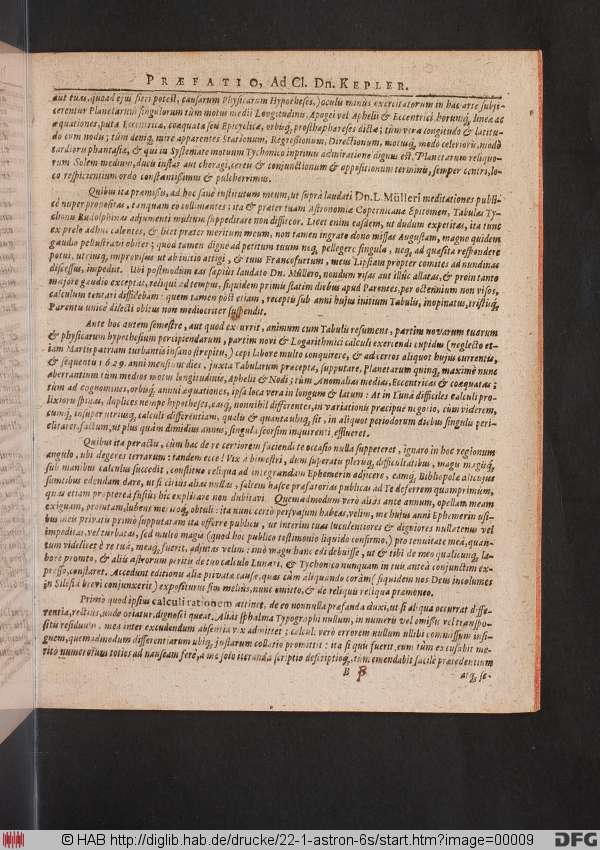 PRÆFATIO, Ad Cl. Dn. KEPLER.
aut tuas, quoad ejus fieri potest, causarum Physicarum Hypotheses.) oculu minùs exercitatorum in hac arte subji-
cerentur Planetarum singulorum tùm motus medii Longitudinis, Apogei vel Aphelii & Eccentrici horumq́, lineæ ac
æquationes, puta Eccentricæ, coæquata seu Epicyclicæ, orbisq́, prosthaphæreses dictæ; tùm vera longitudo & latitu-
do cum nodis; tùm deniq́, mire apparentes Stationum, Regressionum, Directionum, motusq́, modò celerioris, modò
tardioris phantasiæ, & qui in Systemate motuum Tychonico inprimis admiratione dignus est, Planetarum reliquo-
rum Solem medium, ducis instar aut choragi, certis & conjunctionum & oppositionum terminis, semper centri, lo-
co respicientium ordo constantissimus & pulcherrimus.
Quibus ita præmissis, ad hoc sanè institutum meum, ut suprà laudati Dn. I. Mülleri meditationes publi-
cè nuper propositas, tanquam eo collimantes: ita & præter tuam Astronomiæ Copernicanæ Epitomen, Tabulas Ty-
chonis Rudolphinas adjumenti multum suppeditare non diffiteor. Licet enim easdem, ut dudum expetitas, ita tunc
ex prelo adhuc calentes, & licet præter meritum meum, non tamen ingrato dono missas Augustam, magno quidem
gaudio pellustravi obiter; quod tamen dignè ad petitum tuum neq́, pellegere singula, neq́, ad quæsita respondere
potui, utrinsq́, improvisus ut ab initio attigi, & tuus Francofurtum, meus Lipsiam propter comites ad nundinas
discessus, impediit. Ubi postmodum eas sæpius laudato Dn. Müllero, nondum visas aut illuc allatas, & proin tanto
majore gaudio exceptas, reliqui ad tempus, siquidem primis statim diebus apud Parentes, per octennium non visos,
calculum tentari diffidebam: quem tamen post etiam, receptis sub anni hujus initium Tabulis, inopinatus, tristisq́,
Parentis unicè dilecti obitus non mediocriter suspendit.
Ante hoc autem semestre, aut quod excurrit, animum cum Tabulis resumens, partim novarum tuarum
& physicarum hypothesium percipiendarum, partim novi & Logarithmici calculi exercendi cupidus (neglecto et-
iam Martis patriam turbantis insano strepitu,) cepi libere multo conquirere, & ad certos aliquot hujus currentis,
& sequentis 1629. anni mensium dies, juxta Tabularum præcepta, supputare, Planetarum quinq́, maximè nunc
aberrantium tùm medios motus longitudinis, Aphelii & Nodi; tùm Anomalias medias, Eccentricas & coæquatas;
tùm ad cognomines, orbisq́, annui æquationes, ipsa loca vera in longum & latum: At in Lunâ difficiles calculi pro-
lixioris spinas, duplices nempe hypotheses, easq́, nonnihil differentes, in variationis præcipuè negotio, cùm viderem,
cumq́, insuper utriusq́, calculi differentiam, qualis & quanta ubiq́, sit, in aliquot periodorum diebus singulis peri-
clitarer, factum, ut plus quàm dimidius annus, singula seorsim inquirenti, efflueret.
Quibus ita peractis, cùm hac de re certiorem faciendi te occasio nulla suppeteret, ignaro in hoc regionum
angulo, ubi degeres terrarum: tandem ecce! Vix à bimestri, dum superatis plerisq́, difficultatibus, magis magisq́,
sub manibus calculus succedit, constituo reliqua ad integrandam Ephemerin adjicere, eamq́, Bibliopolæ alicujus
sumtibus edendam dare, ut si citius alias nullas, saltem hasce præfatorias publicas ad Te deferrem quamprimùm,
quas etiam properea fusius hic explicare non dubitavi. Quemadmodum verò aliàs ante annum, opellam meam
exiguam, promtam, lubens meritoq́, obtuli: ita nunc certò persvasum habeas, velim, me hujus anni Ephemerin usi-
bus meis privatis primò supputatam ita offerre publicis, ut interim tuas luculentiores & digniores nullatenus vel
impeditas, vel turbatas, sed multò magis (quod hoc publico testimonio liquidò confirmo,) pro tenuitate mea, quan-
tum videlicet è re tuâ, meaq́, fuerit, adjutas velim: imò magis hanc edi debuisse, ut & tibi de meo qualicunq́, la-
bore promto, & aliis astrorum peritis de tuo calculo Lunari, & Tychonico nunquam in tuis anteà conjunctim ex-
presso, constaret. Accedunt editionis aliæ privatæ causæ, quas cùm aliquando coràm (siquidem nos Deus incolumes
in Silesia brevi conjunxerit) expositurus sim melius, nunc omitto, & de reliquis reliqua præmoneo.
Primò quod ipsius calculi rationem attinet, de eo nonnulla præfanda duxi, ut si aliqua occurrat diffe-
rentia, rectius, unde oriatur, dignosci queat. Aliàs sphalma Typographi nullum, in numeris vel omissis vel transpo-
sitis residuum, mea inter excudendum absentia vix admittet; calculi verò errorem nullum alibi commissum insi-
gnem, quemadmodum differentiarum ubiq́, justarum collatio promittit: ita si quis fuerit, eum tùm excusabit me-
ritò numerosum toties ad nauseam ferè, à me solo iteranda scriptio descriptioq́, tùm emendabit facilè præcedentium
B
atq́, se-
© HAB http://diglib.hab.de/drucke/22-1-astron-6s/start.htm?image=00009
DFG